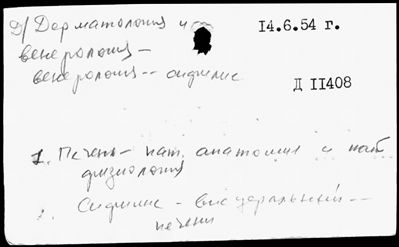 Д/ Дерматология и
венерология —
венерология -- сифилис
14.6.54 г.
Д 11408
1. Печень - пат. анатомия и пат.
физиология
2. Сифилис - висцеральный --
печени